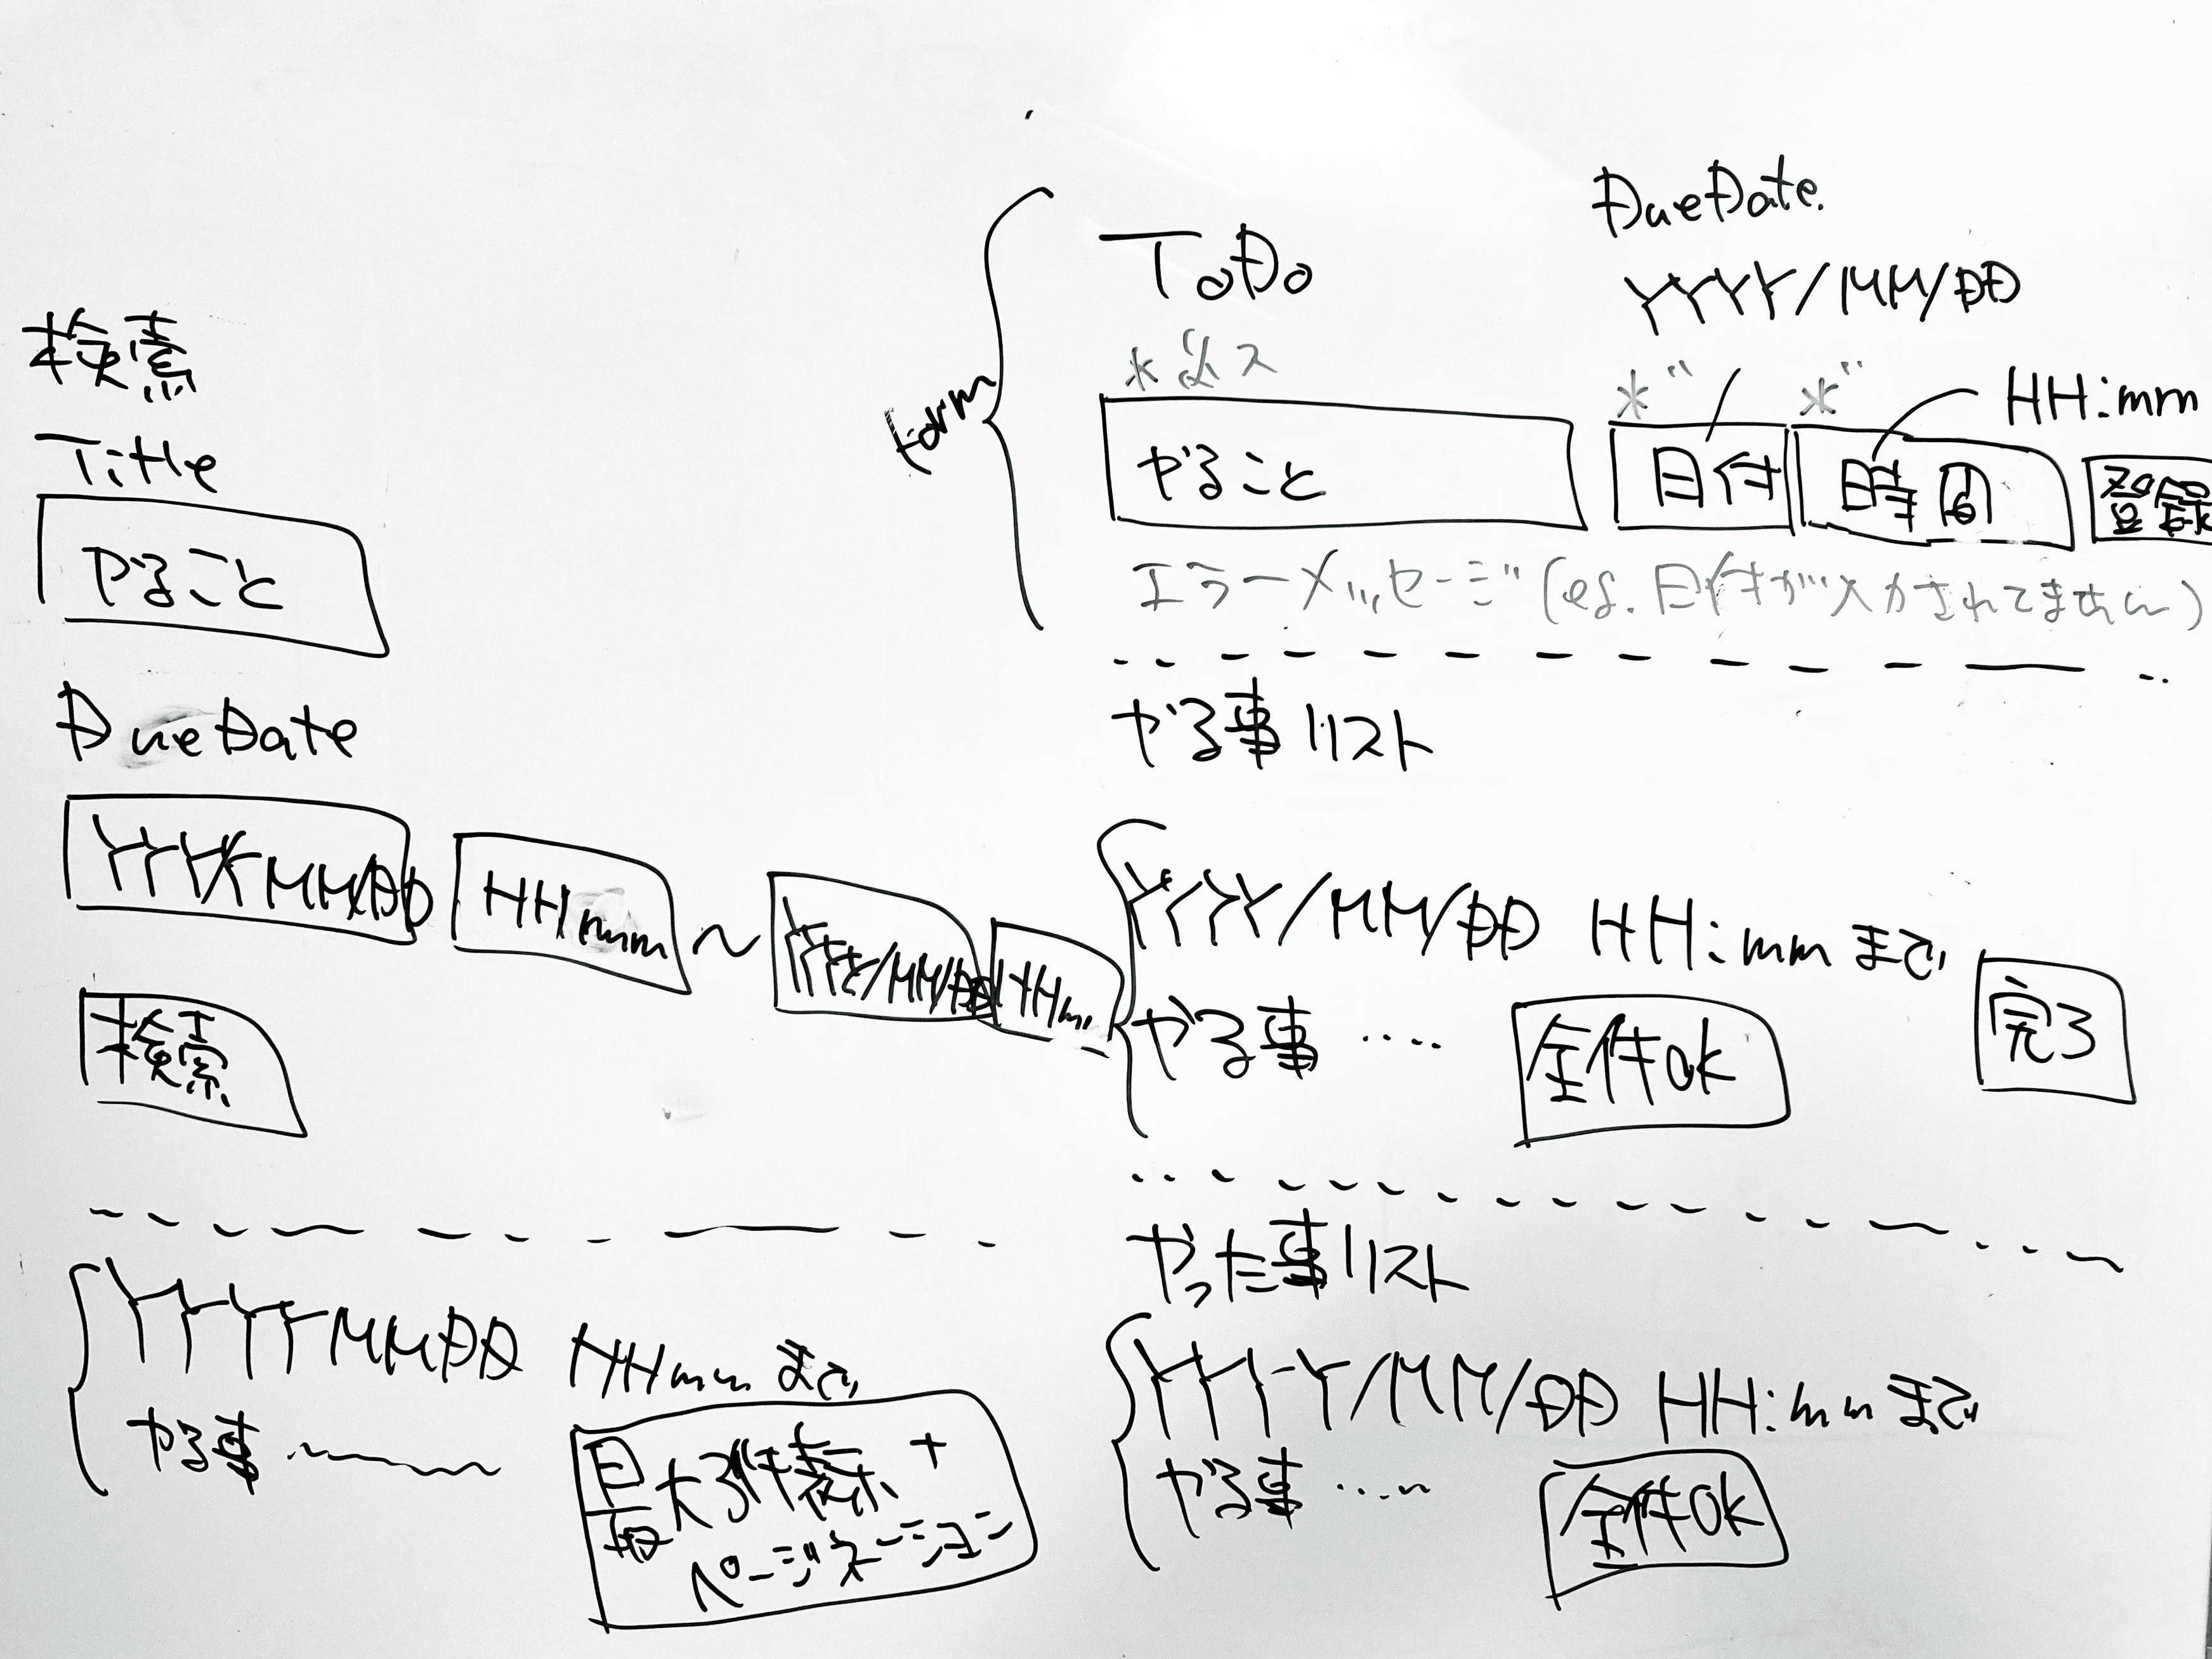 検索
Title
やること
DueDate
YYYY/MM/DD HHmm 〜 YYYY/MM/DD HHm
検索
YYYYMMDD HHmm まで
やる事
最大3件表示 +
ページネーション
Form
ToDo
*必ス
やること
DueDate.
YYYY/MM/DD
*〃 *〃 HH:mm
日付 時間 登録
エラーメッセージ (eg. 日付が入力されてません)
やる事リスト
YYYY/MM/DD HH:mm まで
やる事 ‥‥ 全件OK 完了
やった事リスト
YYYY/MM/DD HH:mm まで
やる事 ‥‥ 全件OK